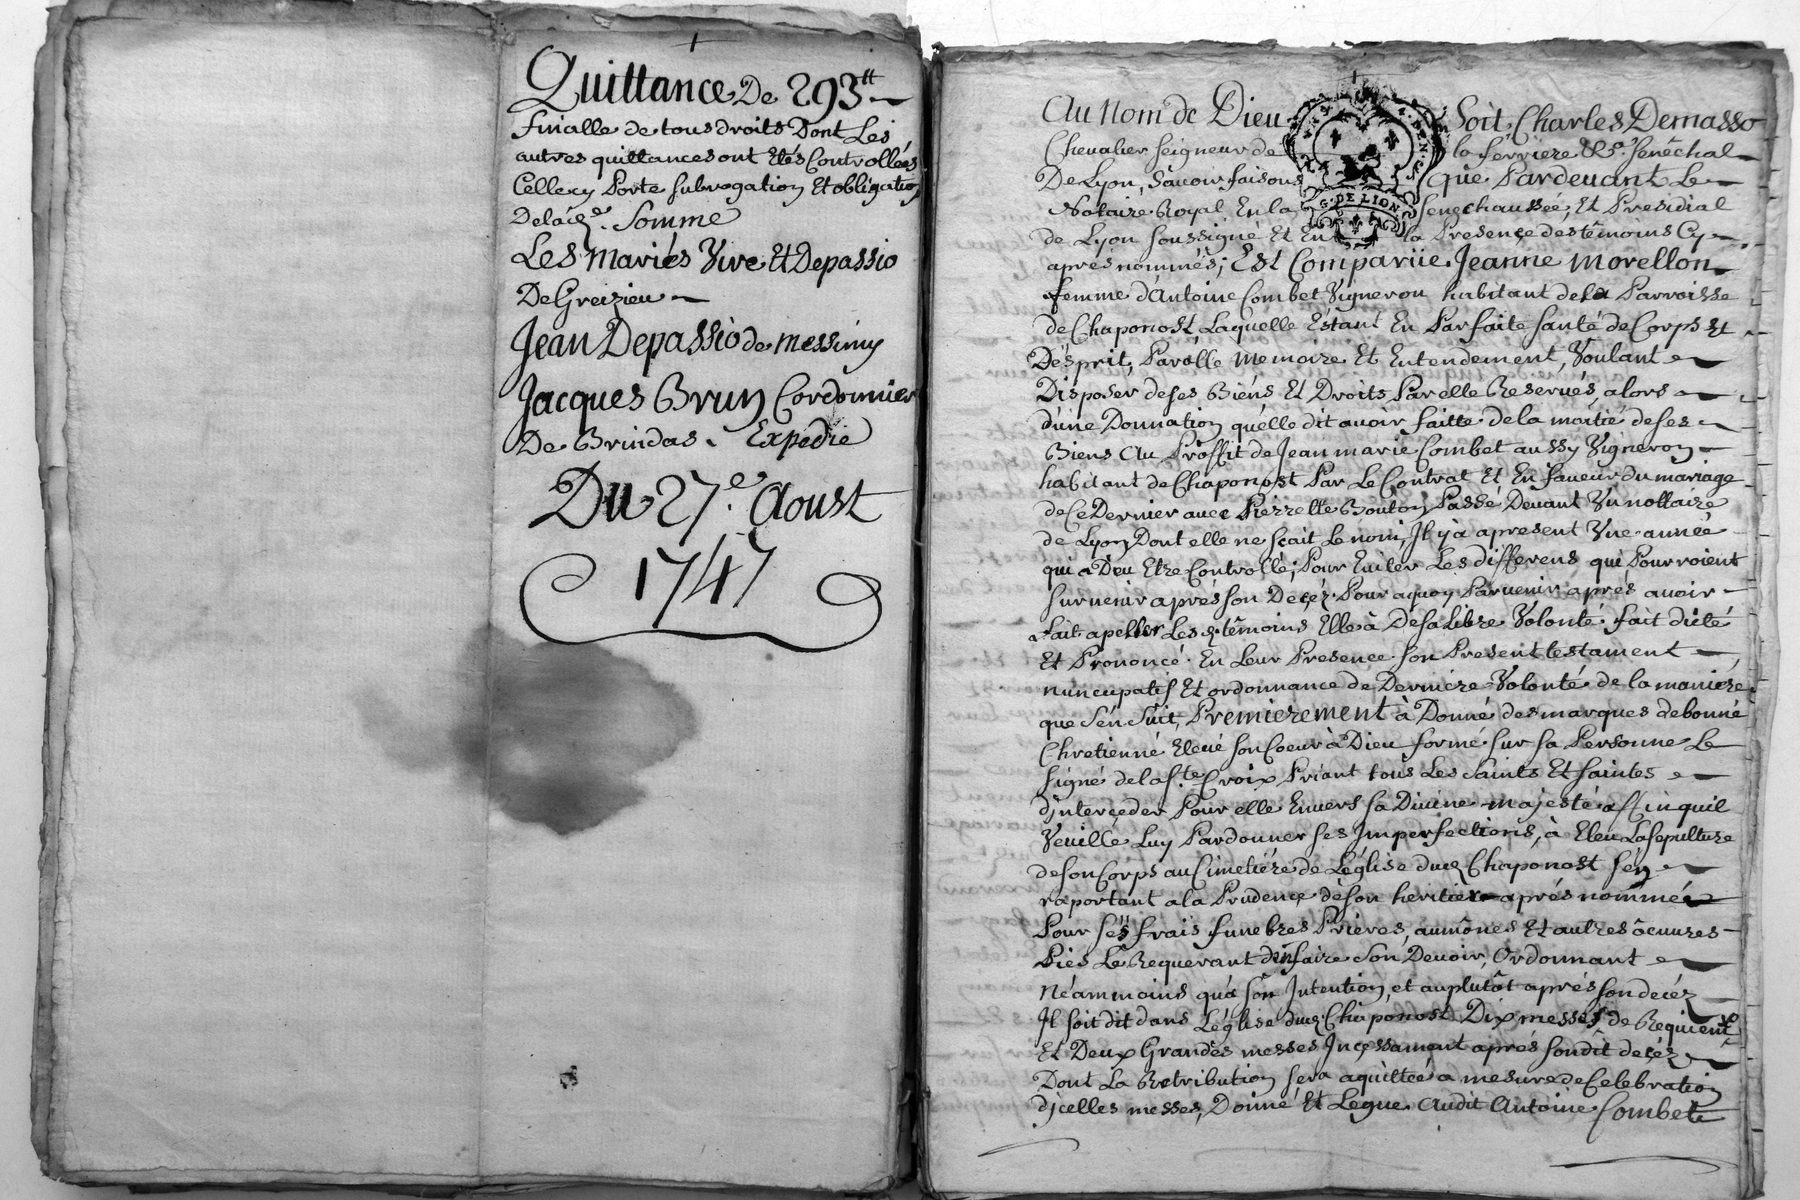 Quittance De 293tt
finalle de tous droits Dont Les
autres quittances ont Etés Controllées
Celle cy Porte subrogation Et obligation
De la de. Somme
Les Mariés Vive Et Depassio
De Greizieu
Jean Depassio de Messimy
Jacques Brun Cordonnier
De Brindas. Expedié
Du 27e. Aoust
1747
Au Nom de Dieu Soit, Charles Demasso
Chevalier seigneur de la ferriere &c. senéchal
De Lyon, Sçavoir faisons que Pardevant Le
Notaire Royal En la senechaussée, Et Presidial
G. DE LION
de Lyon soussigné Et En la Presence des témoins Cy
aprés nommés; Est Comparüe Jeanne Morellon
femme d'Antoine Combet Vigneron habitant de la Parroisse
de Chaponost Laquelle Estant En Parfaite santé de Corps Et
D'ésprit, Parolle Memoire Et Entendement, Voulant
Disposer de ses Biéns Et Droits Par elle Reservés, alors
d'une Donnation qu'elle dit avoir faitte de la moitié de ses
Biens Au Proffit de Jean marie Combet aussy Vigneron
habitant de Chaponost Par Le Contrat Et En faveur du mariage
de Ce Dernier avec Pierrette Bouton Passé Devant Un nottaire
de Lyon Dont elle ne sçait Le nom, Il y a apresent Une année
qui a Deu Etre Controllé; Pour Eviter Les differens qui Pourroient
survenir aprés son Decéz. Pour a quoy Parvenir aprés avoir
fait apeller Les s. témoins Elle à De sa Libre Volonté fait dicté
Et Prononcé En Leur Presence son Present testament
nuncupatif Et ordonnance de Derniere Volonté de la maniere
que S'én Suit, Premierement à Donné des marques de bonne
Chretienne Elevé son Coeur à Dieu formé sur sa Personne Le
signe de la Ste. Croix Priant tous Les Saints Et Saintes
d'interçeder Pour elle Envers sa Divine majesté affin quil
Veuille Luy Pardonner ses Imperfections, à Eleu La sepulture
de son Corps au Cimetiére de L'église dud. Chaponost s'én
raportant a la Prudence de son heritier aprés nommé
Pour sés frais funebres Priéres, aumônes Et autres oeuvres
Pies Le Requerant d'en faire Son Devoir, Ordonnant
Néammoins qu'a son Intention, et auplutôt aprés son decéz
Il soit dit dans L'église dud. Chaponost Dix messes de Requiem
Et Deux Grandes messes Inçessament aprés sondit decéz
Dont La Retribution sera aquittée a mesure de Celebration
d'icelles messes, Donné Et Legue audit Antoine Combet